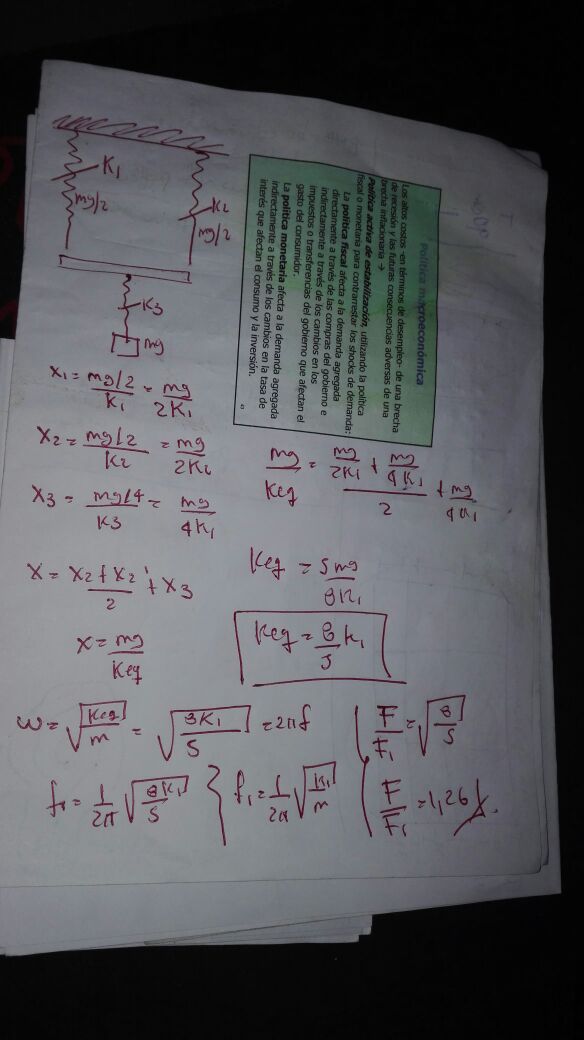 Política macroeconómica
Los altos costos -en términos de desempleo- de una brecha
de recesión y las futuras consecuencias adversas de una
brecha inflacionaria →
Política activa de estabilización, utilizando la política
fiscal o monetaria para contrarrestar los shocks de demanda:
La política fiscal afecta a la demanda agregada
directamente a través de las compras del gobierno e
indirectamente a través de los cambios en los
impuestos o transferencias del gobierno que afectan el
gasto del consumidor.
La política monetaria afecta a la demanda agregada
indirectamente a través de los cambios en la tasa de
interés que afectan el consumo y la inversión.
K1
mg/2
K2
mg/2
K3
mg
x1 = (mg/2)/K1 = mg/2K1
x2 = (mg/2)/K2 = mg/2K2
x3 = (mg/4)/K3 = mg/4K1
x = (x2 + x2)/2 + x3
x = mg/Keq
mg/Keq = (mg/2K1 + mg/4K1)/2 + mg/4K1
Keq = 5mg/8K1
Keq = 8/5 K1
ω = √(Keq/m) = √(8K1/5) = 2πf
f1 = 1/2π √(8K1/5) } f1 = 1/2π √(K1/m)
F/F1 = √(8/5)
F/F1 = 1,26